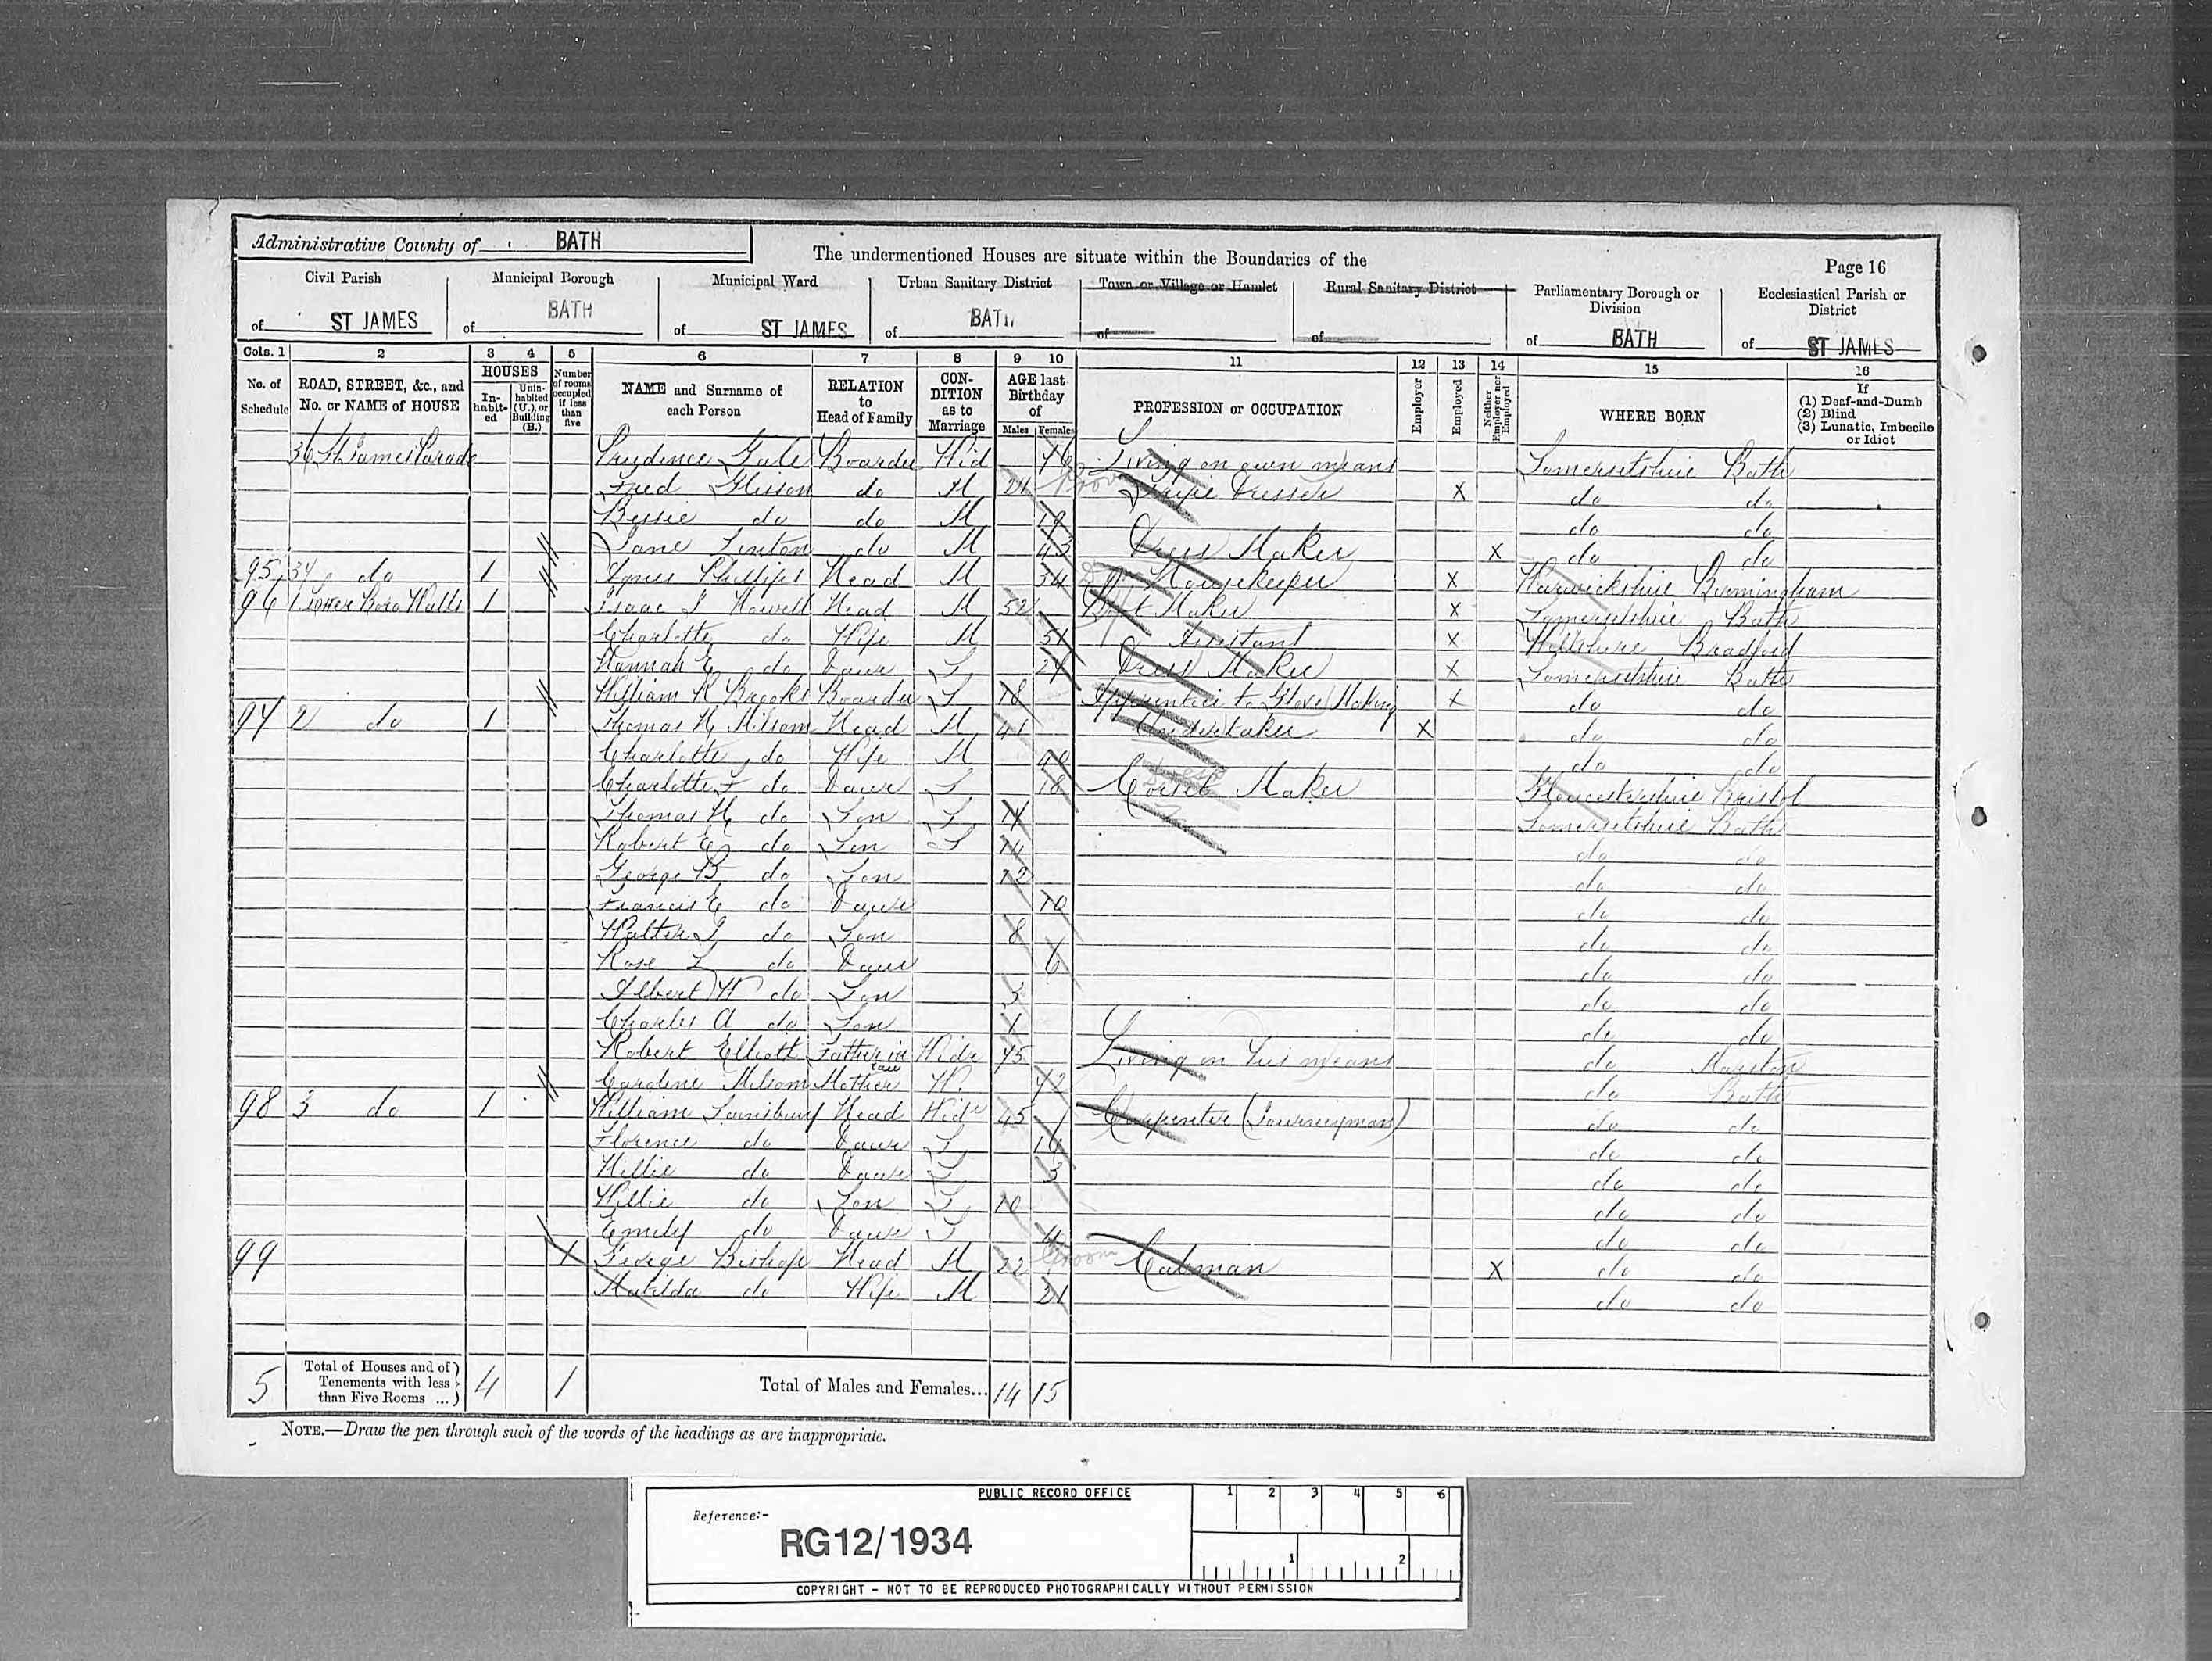 Administrative County of BATH
The undermentioned Houses are situate within the Boundaries of the
Page 16
Civil Parish of ST JAMES
Municipal Borough of BATH
Municipal Ward of ST JAMES
Urban Sanitary District of BATH
Town or Village or Hamlet of
Rural Sanitary District of
Parliamentary Borough or Division of BATH
Ecclesiastical Parish or District of ST JAMES
Cols. 1 2 3 4 5 6 7 8 9 10 11 12 13 14 15 16
No. of Schedule
ROAD, STREET, &c., and No. or NAME of HOUSE
HOUSES
In-habit-ed
Unin-habited (U.), or Building (B.)
Number of rooms occupied if less than five
NAME and Surname of each Person
RELATION to Head of Family
CON-DITION as to Marriage
AGE last Birthday of
Males Females
PROFESSION or OCCUPATION
Employer
Employed
Neither Employer nor Employed
WHERE BORN
If (1) Deaf-and-Dumb (2) Blind (3) Lunatic, Imbecile or Idiot
36 St James Parade Prudence Boarder Wid 76 Living on own means Somersetshire Bath
Fred do M Tripe Dresser X do do
Bessie do do M 19 do do
Jane Linton do M 43 Dress Maker X do do
95 37 do 1 Agnes Phillips Head M 34 Housekeeper X Warwickshire Birmingham
96 1 Lower Boro Walls 1 Isaac J Howell Head M 52 Maker X Somersetshire Bath
Charlotte do Wife M 51 Assistant X Wiltshire Bradford
Hannah E do Daur S Dress Maker X Somersetshire Bath
William R Brooks Boarder S 18 Apprentice to Glove Making X do do
97 2 do 1 Thomas H Milsom Head M 41 Undertaker X do do
Charlotte do Wife M do do
Charlotte F do Daur S 18 Corset Maker Gloucestershire Bristol
Thomas H do Son S Somersetshire Bath
Robert E do Son S 14 do do
George B do Son 12 do do
Francis E do Daur 10 do do
Walter J do Son 8 do do
Rose L do Daur 6 do do
Albert W do Son 3 do do
Charles A do Son 1 do do
Robert Elliott Father in law Widr 75 Living on his means do
Caroline Milsom Mother W. 72 do Bath
98 3 do 1 William Sainsbury Head Widr 45 Carpenter (Journeyman) do do
Florence do Daur S do do
do Daur S do do
Willie do Son S 10 do do
Emily do Daur S do do
99 George Bishop Head M 22 Groom Cabman X do do
Matilda do Wife M 21 do do
5 Total of Houses and of Tenements with less than Five Rooms ... 4 1 Total of Males and Females... 14 15
NOTE.—Draw the pen through such of the words of the headings as are inappropriate.
PUBLIC RECORD OFFICE
1 2 3 4 5 6
Reference:-
RG12/1934
1 2
COPYRIGHT - NOT TO BE REPRODUCED PHOTOGRAPHICALLY WITHOUT PERMISSION